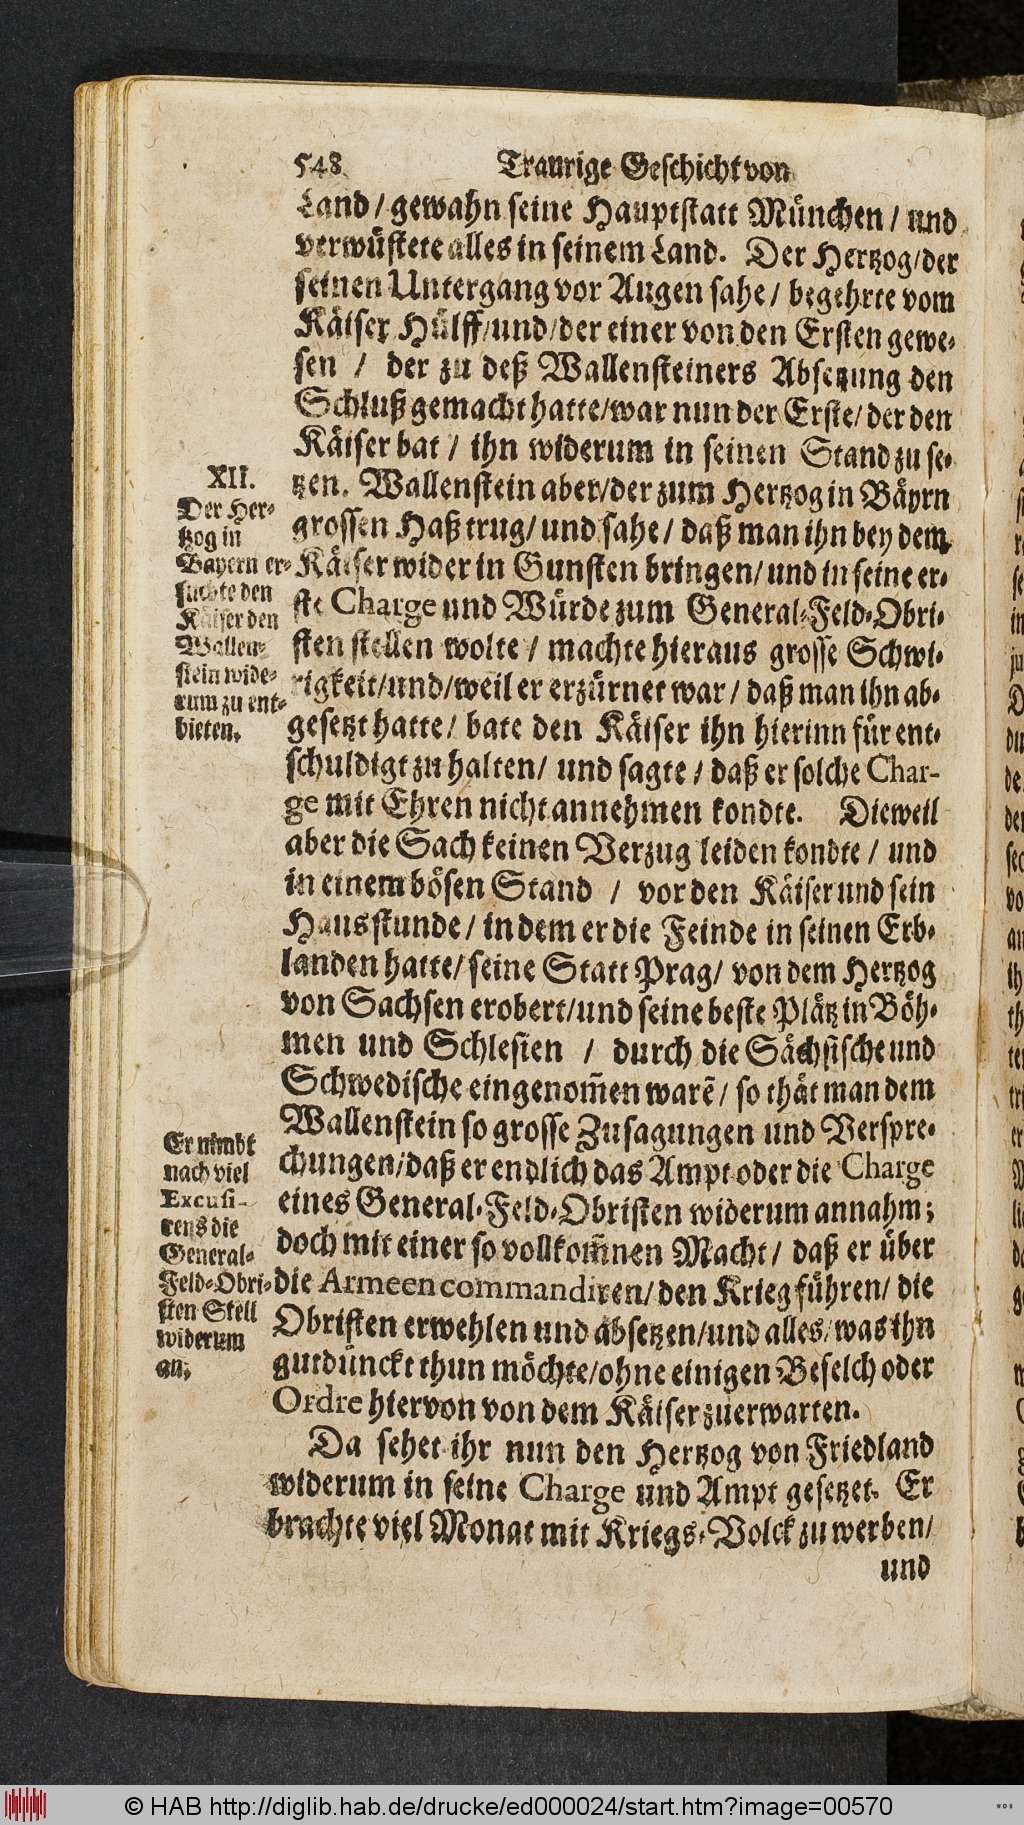 548 Traurige Geschicht von
Land / gewahn seine Hauptstatt München / und
verwüstete alles in seinem Land. Der Hertzog/der
seinen Untergang vor Augen sahe / begehrte vom
Käiser Hülff/und/der einer von den Ersten gewe-
sen / der zu deß Wallensteiners Absetzung den
Schluß gemacht hatte/war nun der Erste/ der den
Käiser bat / ihn widerum in seinen Stand zu se-
tzen. Wallenstein aber/der zum Hertzog in Bäyrn
grossen Haß trug/ und sahe / daß man ihn bey dem
Käiser wider in Gunsten bringen/ und in seine er-
ste Charge und Würde zum General-Feld-Obri-
sten stellen wolte / machte hieraus grosse Schwi-
rigkeit/und/weil er erzürnet war / daß man ihn ab-
gesetzt hatte/ bate den Käiser ihn hierinn für ent-
schuldigt zu halten/ und sagte / daß er solche Char-
ge mit Ehren nicht annehmen kondte. Dieweil
aber die Sach keinen Verzug leiden kondte / und
in einem bösen Stand / vor den Käiser und sein
Haus stunde / in dem er die Feinde in seinen Erb-
landen hatte/ seine Statt Prag/ von dem Hertzog
von Sachsen erobert/und seine beste Plätz in Böh-
men und Schlesien / durch die Sächsische und
Schwedische eingenom̃en warẽ / so thät man dem
Wallenstein so grosse Zusagungen und Verspre-
chungen/daß er endlich das Ampt oder die Charge
eines General-Feld-Obristen widerum annahm;
doch mit einer so vollkom̃nen Macht / daß er über
die Armeen commandiren/ den Krieg führen/ die
Obristen erwehlen und absetzen/und alles/was ihn
gutdünckt thun möchte/ohne einigen Befelch oder
Ordre hiervon von dem Käiser zuerwarten.
Da sehet ihr nun den Hertzog von Friedland
widerum in seine Charge und Ampt gesetzet. Er
brachte viel Monat mit Kriegs-Volck zu werben/
und
XII.
Der Her-
tzog in
Bayern er-
suchte den
Käiser den
Wallen-
stein wide-
rum zu ent-
bieten.
Er nimbt
nach viel
Excusi-
rens die
General-
Feld-Obri-
sten Stell
widerum
an.
© HAB http://diglib.hab.de/drucke/ed000024/start.htm?image=00570